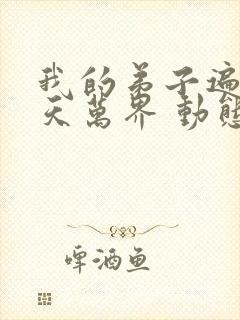 我的弟子遍
天萬界 動態
啤酒鱼